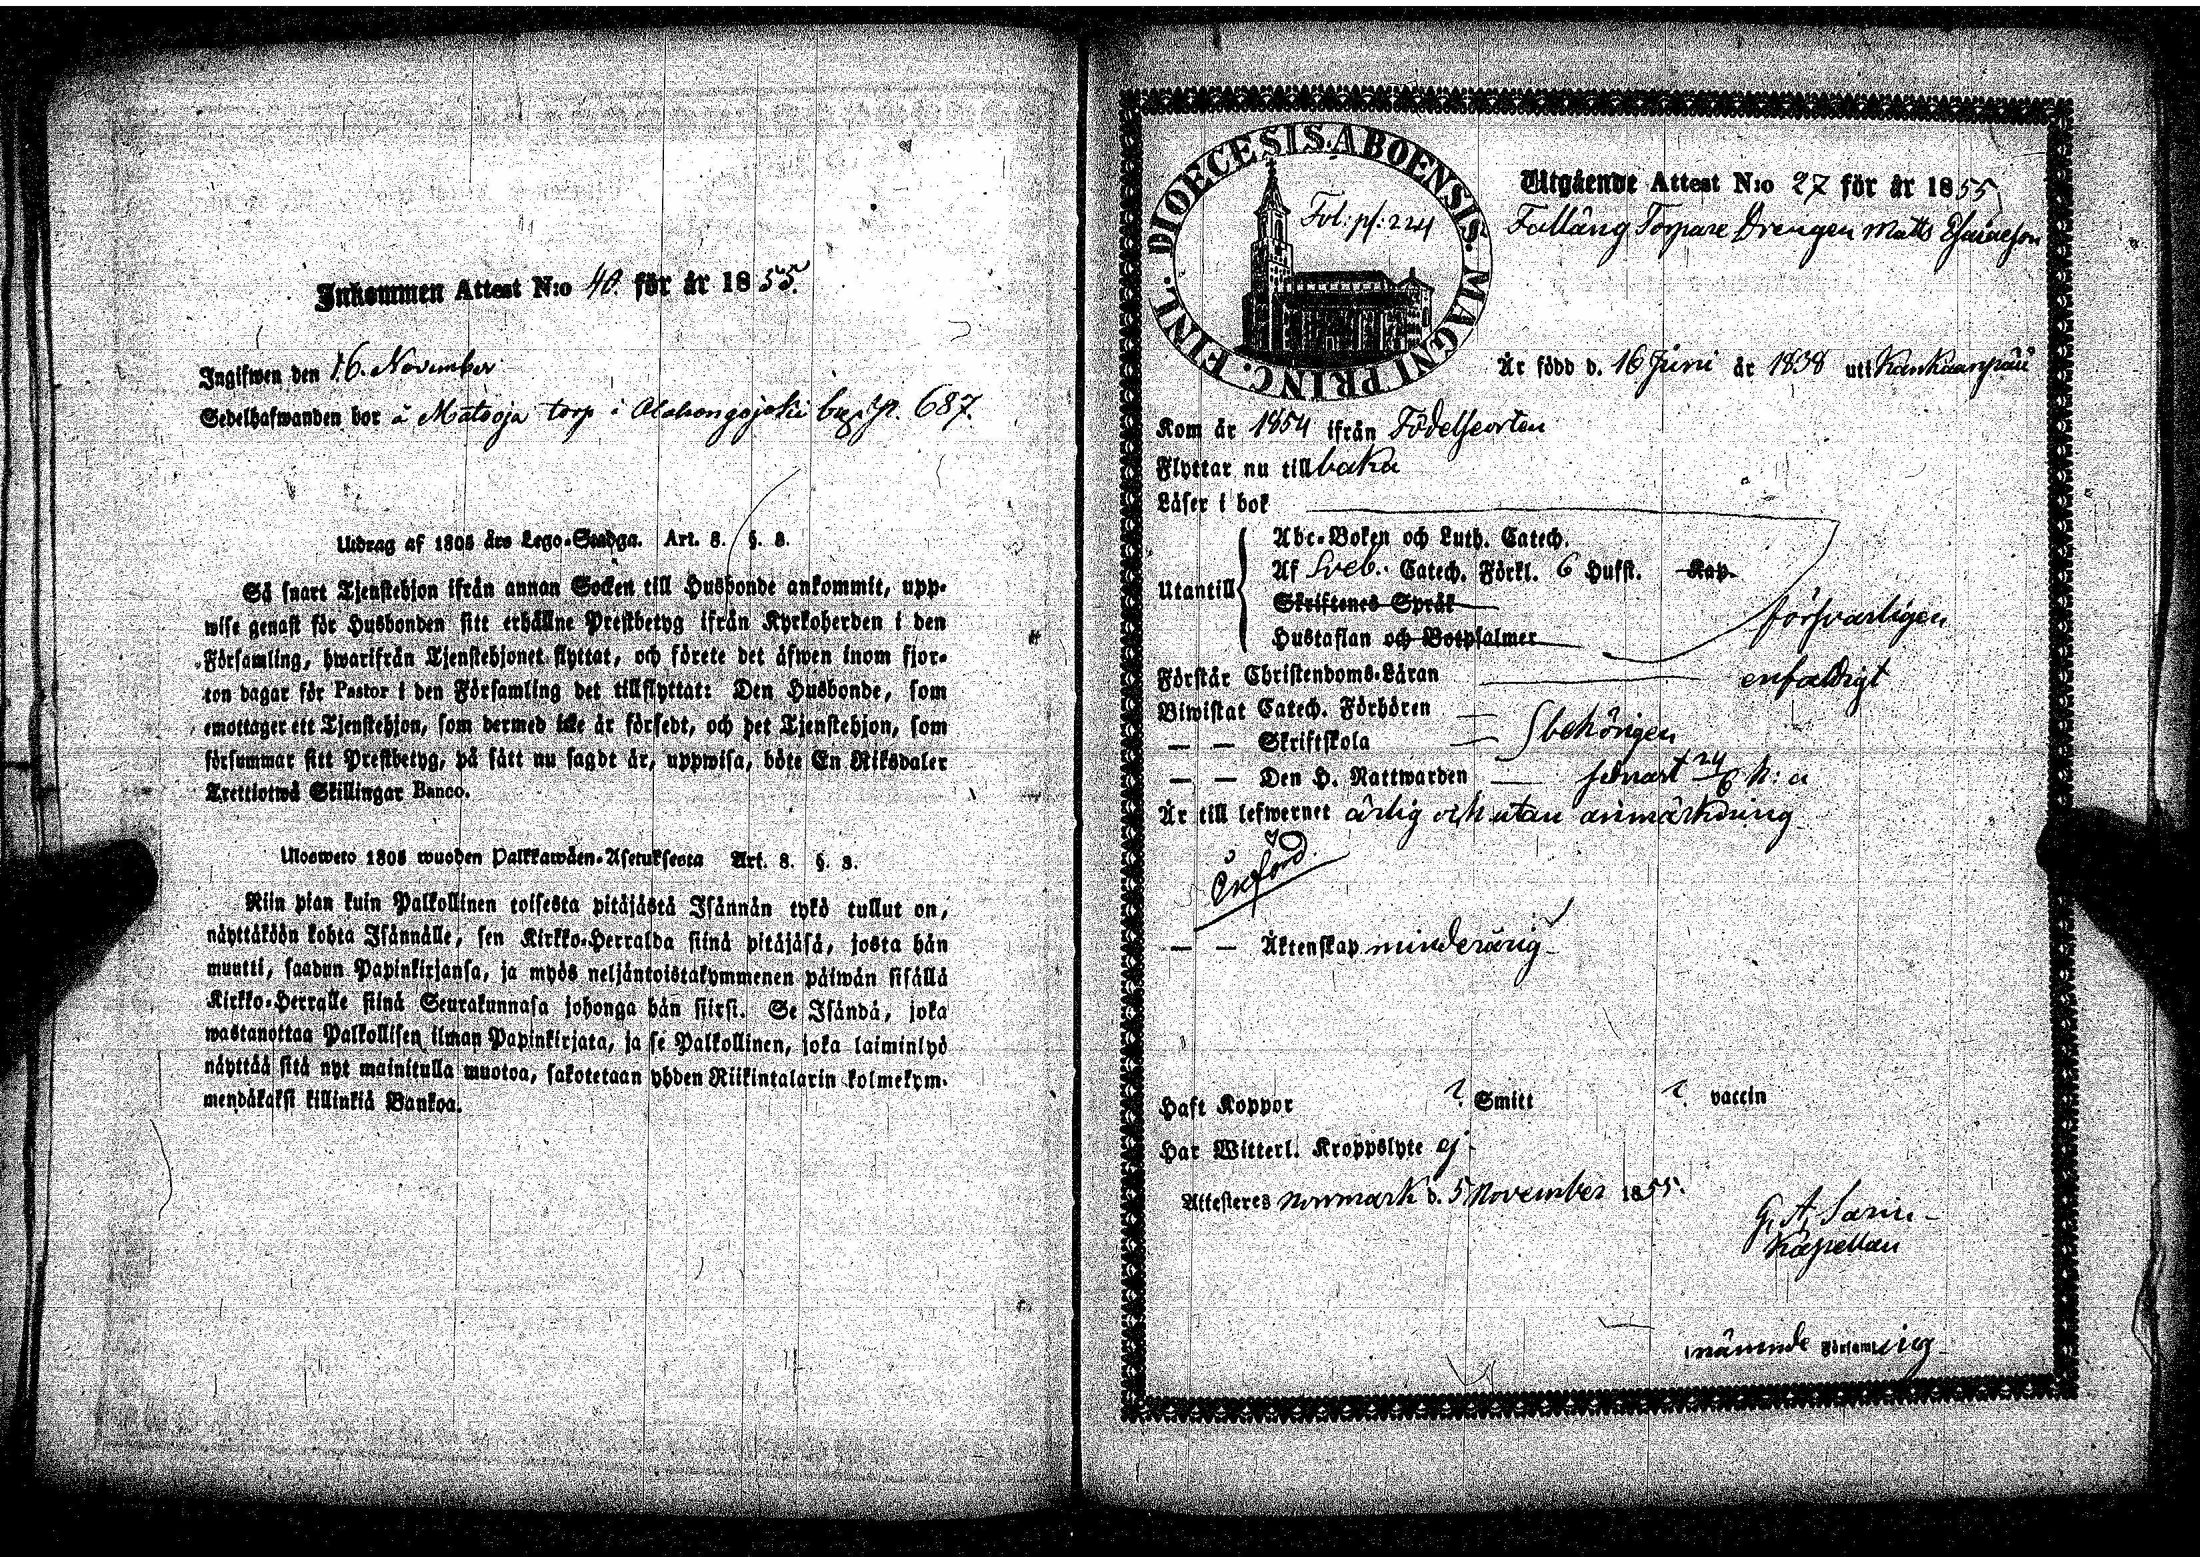 Inkommen Attest N:o 40. för år 1855.
Ingifwen den 16. November
Sedelhafwanden bor å Matsoja torp i Alahongojoki by, p. 687.
Utdrag af 1805 års Lego-Stadga. Art. 8. §. 8.
Så snart Tjenstehjon ifrån annan Socken till Husbonde ankommit, upp-
wise genast för Husbonden sitt erhållne Prestbetyg ifrån Kyrkoherden i den
Församling, hwarifrån Tjenstehjonet flyttat, och förete det äfwen inom fjor-
ton dagar för Pastor i den Församling det tillflyttat: Den Husbonde, som
emottager ett Tjenstehjon, som dermed icke är försedt, och det Tjenstehjon, som
försummar sitt Prestbetyg, på sätt nu sagdt är, uppwisa, böte En Riksdaler
Trettiotwå Skillingar Banco.
Ulosweto 1805 wuoden Palkkawäen-Asetuksesta Art. 8. §. 8.
Niin pian kuin Palkollinen toisesta pitäjästä Isännän tykö tullut on,
näyttäköön kohta Isännälle, sen Kirkko-Herralda siinä pitäjäsä, josta hän
muutti, saadun Papinkirjansa, ja myös neljäntoistakymmenen päiwän sisällä
Kirkko-Herralle siinä Seurakunnasa johonga hän siirsi. Se Isändä, joka
wastanottaa Palkollisen ilman Papinkirjata, ja se Palkollinen, joka laiminlyö
näyttää sitä nyt mainitulla muotoa, sakotetaan yhden Riikintalarin kolmekym-
mendäkaksi killinkiä Bankoa.
DIOECESIS ABOENSIS. MAGNI PRINC. FINL.
Fol: p: 224
Utgående Attest N:o 27 för år 1855
Torpare Drengen Matts Esaiaeson
Är född d. 16 Juni år 1838 uti Kankaanpää
Kom år 1854 ifrån Födelseorten
Flyttar nu tillbaka
Läser i bok
Utantill
Abc-Boken och Luth. Catech.
Af Sveb. Catech. Förkl. 6 Hufst. Kap.
Skriftenes Språk
Hustaflan och Botpsalmer
försvarligen
Förstår Christendoms-Läran enfaldigt
Biwistat Catech. Förhören
— — Skriftskola behörigen
— — Den H. Nattwarden senast 24/6 h: a
Är till lefwernet ärlig och utan anmärkning
— — Äktenskap minderårig
Haft Koppor ? Smitt ? vaccin
Har Witterl. Kroppslyte ej
Attesteres Norrmark d. 5 November 1855.
Kapellan
nämnde Församling